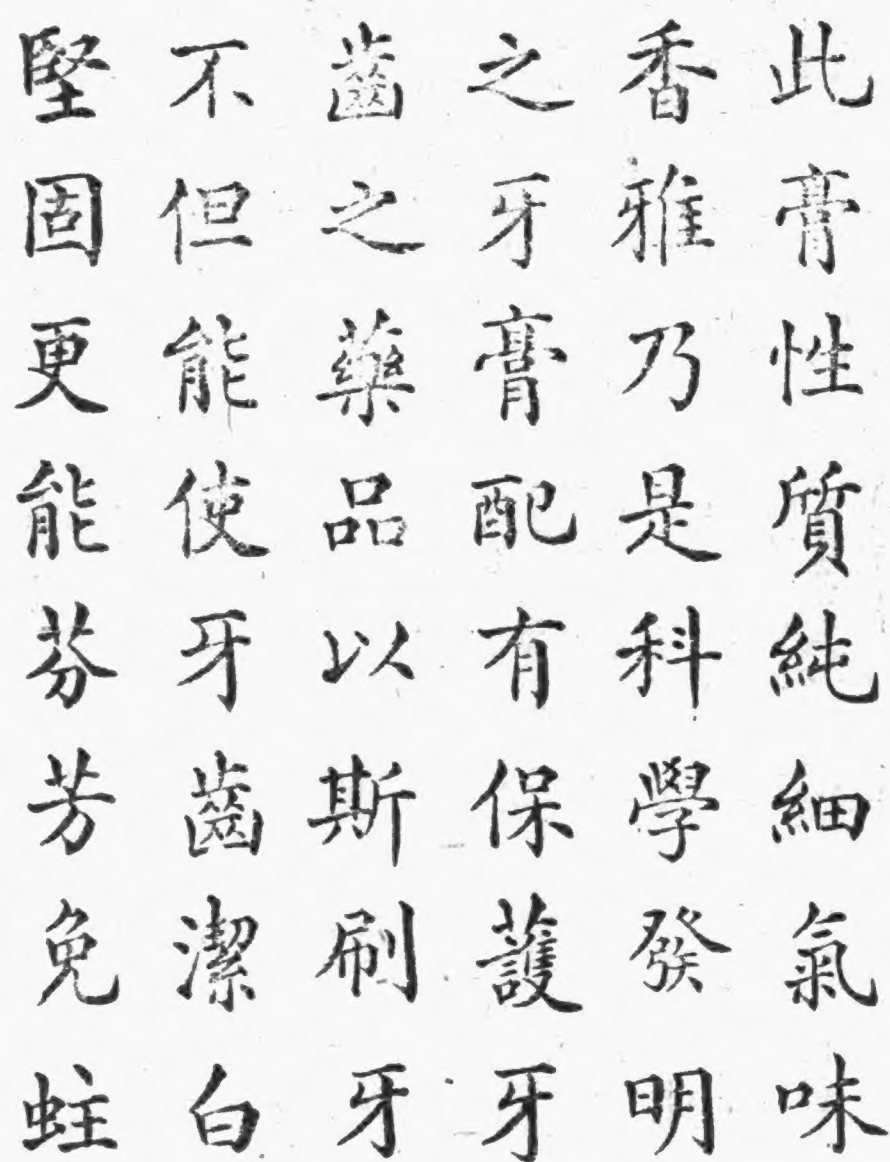 此膏性質純細氣味
香雅乃是科學發明
之牙膏配有保護牙
齒之藥品以斯刷牙
不但能使牙齒潔白
堅固更能芬芳免蛀